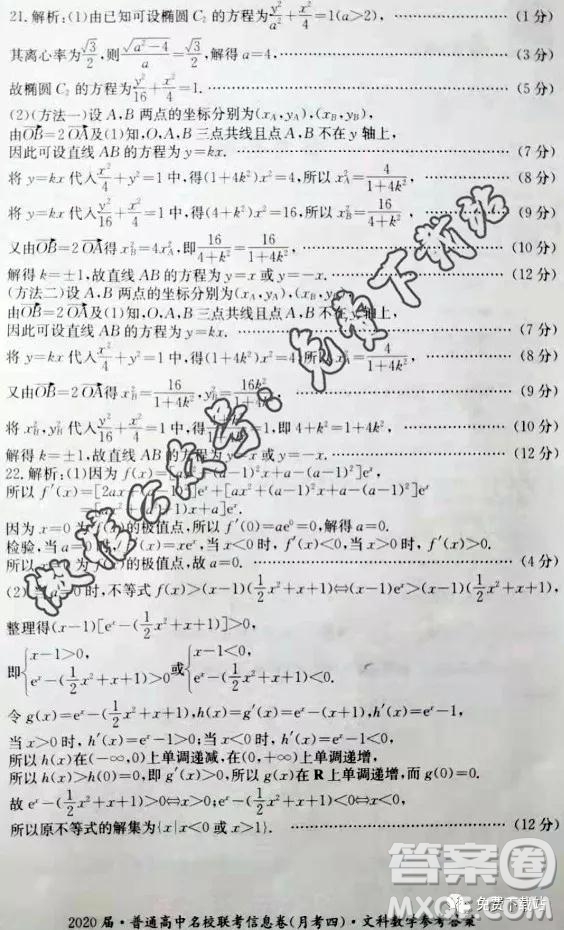 21.解析:(1)由已知可设椭圆 C₂ 的方程为 y²/a²+x²/4=1(a>2), (1分)
其离心率为√3/2,则√(a²-4)/a=√3/2,解得 a=4, (3分)
故椭圆 C₂ 的方程为 y²/16+x²/4=1. (5分)
(2)(方法一)设 A,B 两点的坐标分别为(x_A,y_A),(x_B,y_B),
由OB=2 OA及(1)知,O,A,B 三点共线且点 A,B 不在 y 轴上,
因此可设直线 AB 的方程为 y=kx. (7分)
将 y=kx 代入x²/4+y²=1 中,得(1+4k²)x²=4,所以 x_A²=4/(1+4k²), (8分)
将 y=kx 代入y²/16+x²/4=1 中,得(4+k²)x²=16,所以 x_B²=16/(4+k²), (9分)
又由OB=2 OA得 x_B²=4x_A²,即16/(4+k²)=16/(1+4k²), (10分)
解得 k=±1,故直线 AB 的方程为 y=x 或 y=-x. (12分)
(方法二)设 A,B 两点的坐标分别为(x_A,y_A),(x_B,y_B),
由OB=2 OA及(1)知,O,A,B 三点共线且点 A,B 不在 y 轴上,
因此可设直线 AB 的方程为 y=kx. (7分)
将 y=kx 代入x²/4+y²=1 中,得(1+4k²)x²=4,所以 x_A²=4/(1+4k²), (8分)
又由OB=2 OA得 x_B²=16/(1+4k²),y_B²=16k²/(1+4k²), (9分)
将 x_B²,y_B² 代入y²/16+x²/4=1 中,得 =1,即 4+k²=1+4k², (10分)
解得 k=±1,故直线 AB 的方程为 y=x 或 y=-x. (12分)
22.解析:(1)因为 f(x)=[ax²+(a-1)²x+a-(a-1)²]eˣ,
所以 f′(x)=[2ax+(a-1)²]eˣ+[ax²+(a-1)²x+a-(a-1)²]eˣ
=[ax²+(a²+1)x+a]eˣ.
因为 x=0 为 f(x)的极值点,所以 f′(0)=ae⁰=0,解得 a=0.
检验,当 a=0 时,f′(x)=xeˣ,当 x<0 时,f′(x)<0,当 x>0 时,f′(x)>0.
所以 x=0 为 f(x)的极值点,故 a=0. (4分)
(2)当 a=0 时,不等式 f(x)>(x-1)(½x²+x+1)⇔(x-1)eˣ>(x-1)(½x²+x+1),
整理得(x-1)[eˣ-(½x²+x+1)]>0,
即{x-1>0, eˣ-(½x²+x+1)>0 或{x-1<0, eˣ-(½x²+x+1)<0.
令 g(x)=eˣ-(½x²+x+1),h(x)=g′(x)=eˣ-(x+1),h′(x)=eˣ-1,
当 x>0 时,h′(x)=eˣ-1>0;当 x<0 时,h′(x)=eˣ-1<0,
所以 h(x)在(-∞,0)上单调递减,在(0,+∞)上单调递增,
所以 h(x)>h(0)=0,即 g′(x)>0,所以 g(x)在 R 上单调递增,而 g(0)=0.
故 eˣ-(½x²+x+1)>0⇔x>0;eˣ-(½x²+x+1)<0⇔x<0,
所以原不等式的解集为{x|x<0 或 x>1}. (12分)
2020届·普通高中名校联考信息卷(月考四)·文科数学参考答案
微信公众号:免费下载站
答案圈
MXQE.COM
免费下载站